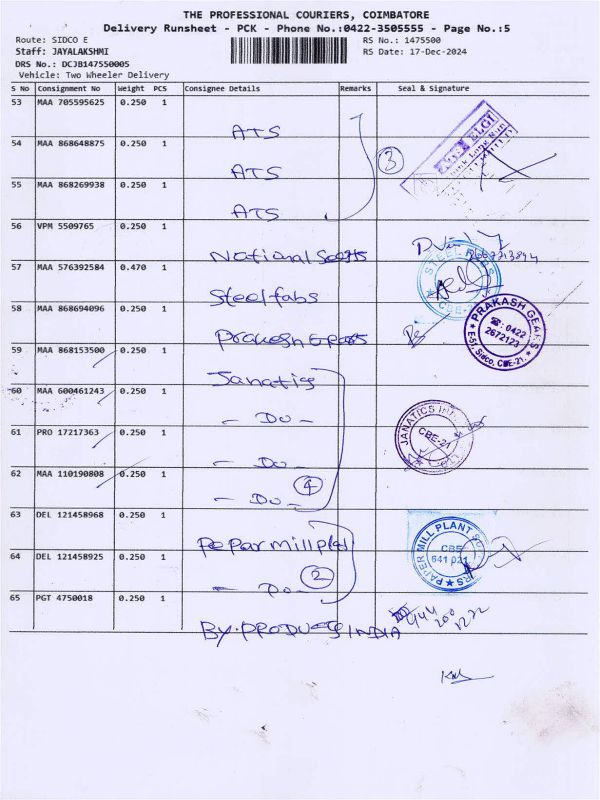 THE PROFESSIONAL COURIERS, COIMBATORE
Delivery Runsheet - PCK - Phone No.:0422-3505555 - Page No.:5
Route: SIDCO E
RS No.: 1475500
Staff: JAYALAKSHMI
RS Date: 17-Dec-2024
DRS No.: DCJB147550005
Vehicle: Two Wheeler Delivery
S No Consignment No Weight PCS Consignee Details Remarks Seal & Signature
53 MAA 705595625 0.250 1
ATS
54 MAA 868648875 0.250 1
ATS
3
55 MAA 868269938 0.250 1
ATS
56 VPM 5509765 0.250 1
National
57 MAA 576392584 0.470 1
Steel fabs
STEEL
CBE-21
58 MAA 868694096 0.250 1
Prakash Gears
PRAKASH GEARS
☎: 0422
2672123
E-51, Sidco, CBE-21.
59 MAA 868153500 0.250 1
Janatics
60 MAA 600461243 0.250 1
- Do -
61 PRO 17217363 0.250 1
- Do -
JANATICS
CBE-21
62 MAA 110190808 0.250 1
- Do -
4
63 DEL 121458968 0.250 1
PAPER MILL PLANT
CBE
641 021
64 DEL 121458925 0.250 1
- Do -
2
65 PGT 4750018 0.250 1
INDIA